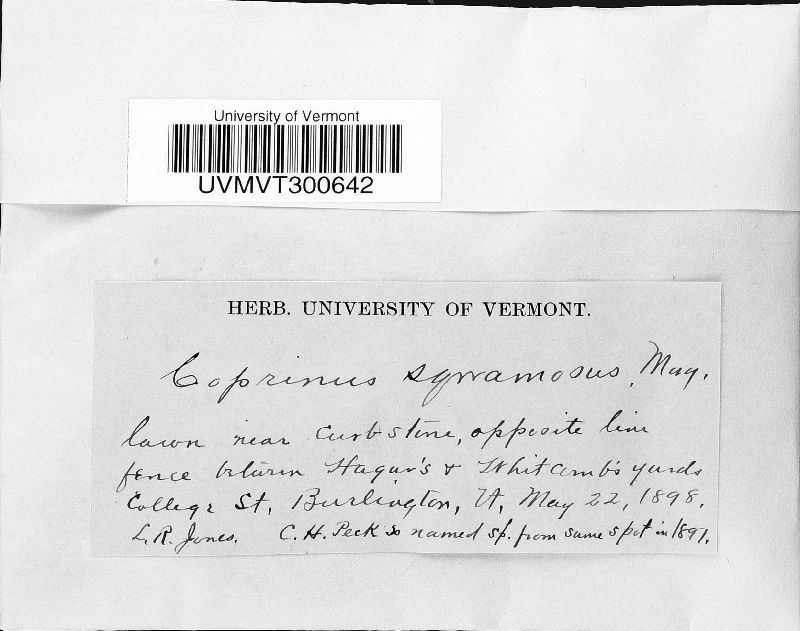 University of Vermont
UVMVT300642
HERB. UNIVERSITY OF VERMONT.
Coprinus squamosus, Mug.
lawn near curbstone, opposite line
fence between Hagar's & Whitcomb's yards
College St, Burlington, Vt, May 22, 1898.
L. R. Jones. C. H. Peck so named sp. from same spot in 1897.